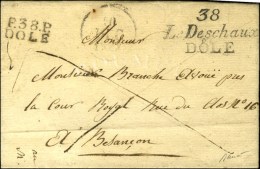 P.38.P.
DOLE
38
Deschaux
DOLE
Monsieur
Monsieur Branche Avoué près
la Cour Royal Rue du Clos N° 16
A Besançon